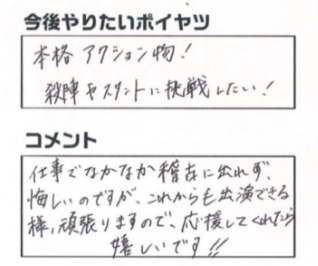 今後やりたいポイヤツ
本格アクション物!
殺陣やスタントに挑戦したい!
コメント
仕事でなかなか稽古に出れず、
悔しいのですが、これからも出演できる
様、頑張りますので、応援してくれたら
嬉しいです!!